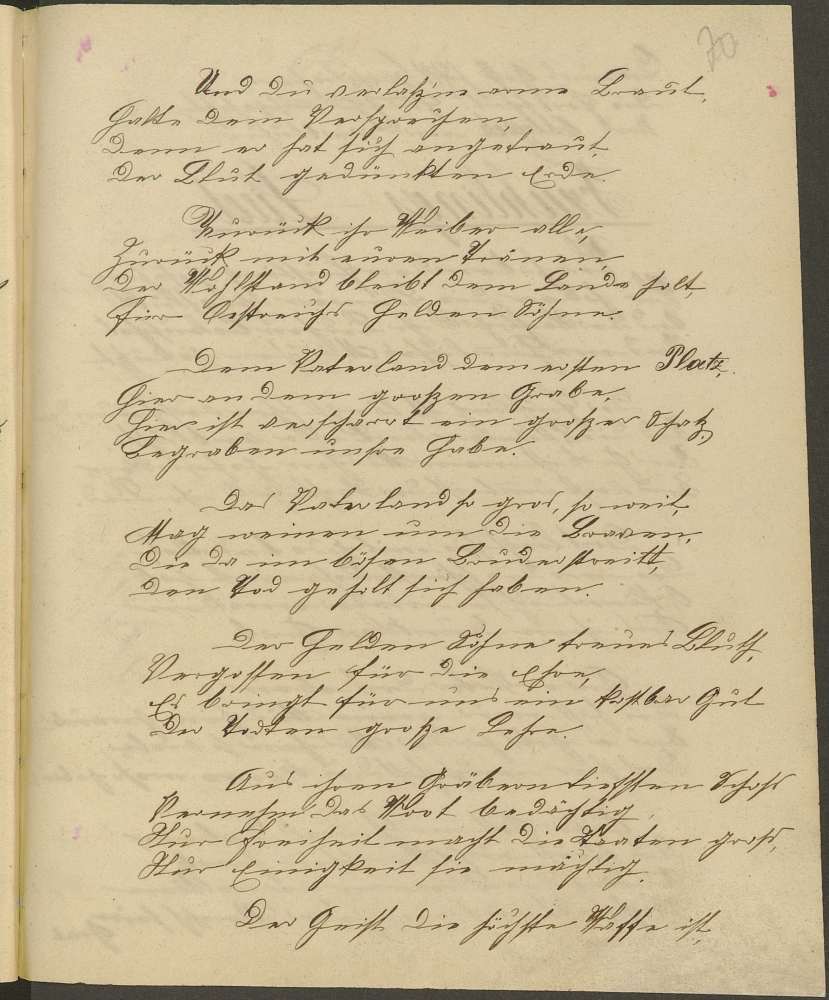 70
Und du verlaßne arme Braut,
Halte dein Versprechen,
Denn er hat sich angetraut,
Der Blut gedünkten Erde.
Zurück ihr Weiber alle,
Zurück mit euren Tränen,
Der Wohlstand bleibt dem Lande holt,
Für Oestreichs Helden Söhne.
Dem Vaterland dem ersten Platz,
Hier an dem großen Grabe,
Hier ist verscharrt ein großer Schatz,
Begraben unsre Habe.
Das Vaterland so gros, so weit,
Mag weinen um die Braven,
Die da im bösen Bruderstreitt,
Den Tod geholt sich haben.
Der Helden Söhne treues Bluth,
Vergossen für die Ehre,
Es bringt für uns ein kostbar Gut
Der Todten große Lehre.
Aus ihren Gräbern tiefsten Schoß
Vernehm das Wort bedächtig,
Nur Freiheit macht die Staaten groß,
Nur Einigkeit sie mächtig.
Der Geist die höchste Waffe ist,